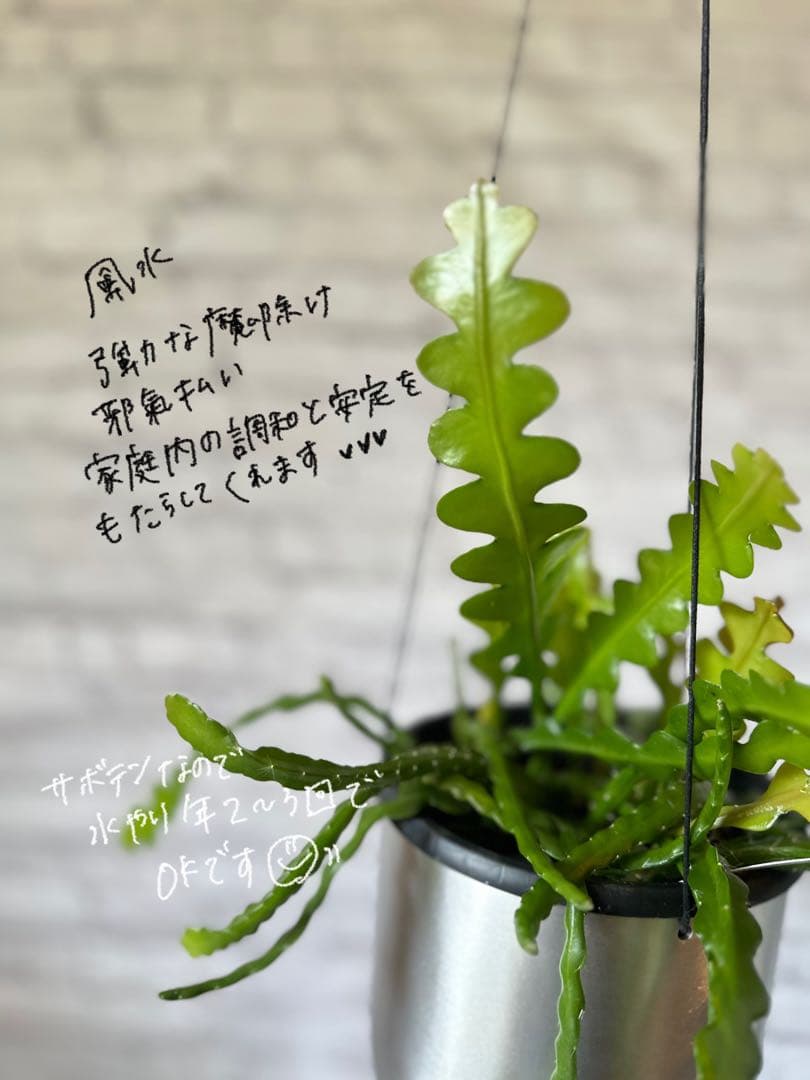 風水
強力な魔除け
邪氣払い
家庭内の調和と安定を
もたらしてくれます♥♥♥
サボテンなので
水やり年2〜3回で
OKです☺〃